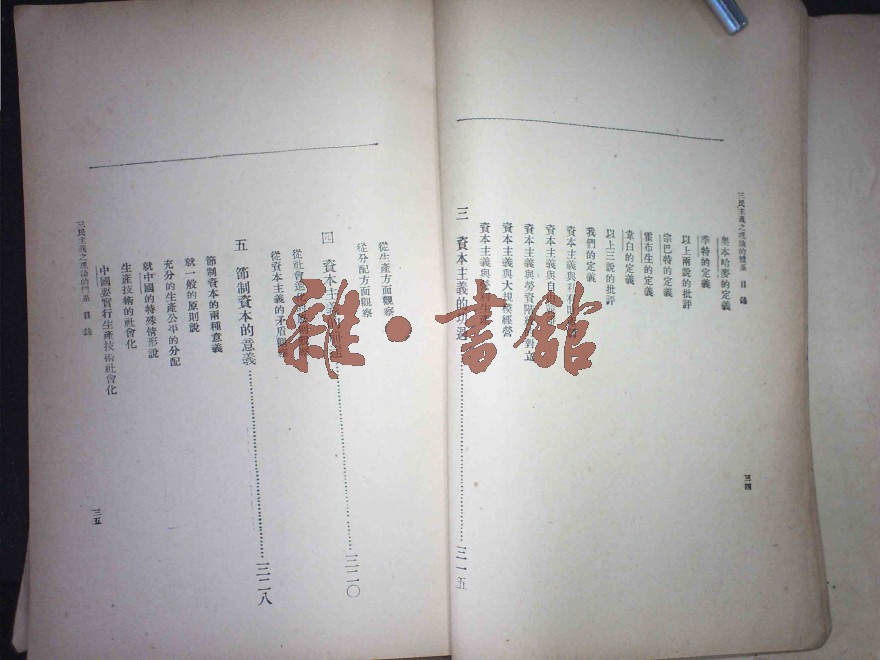 三民主義之理論的體系 目錄
奧本哈麥的定義
季特的定義
以上兩說的批評
宗巴特的定義
霍布生的定義
韋白的定義
以上三說的批評
我們的定義
資本主義與私有
資本主義與自由
資本主義與勞資階 對立
資本主義與大規模經營
資本主義與
三 資本主義的功過……三一五
三四
從生產方面觀察
從分配方面觀察
四 資本主義……三二〇
從社會進化
從資本主義的矛盾觀察
五 節制資本的意義……三二八
節制資本的兩種意義
就一般的原則說
充分的生產公平的分配
就中國的特殊情形說
生產技術的社會化
中國要實行生產技術社會化
三民主義之理論的體系 目錄
三五
雜·書館